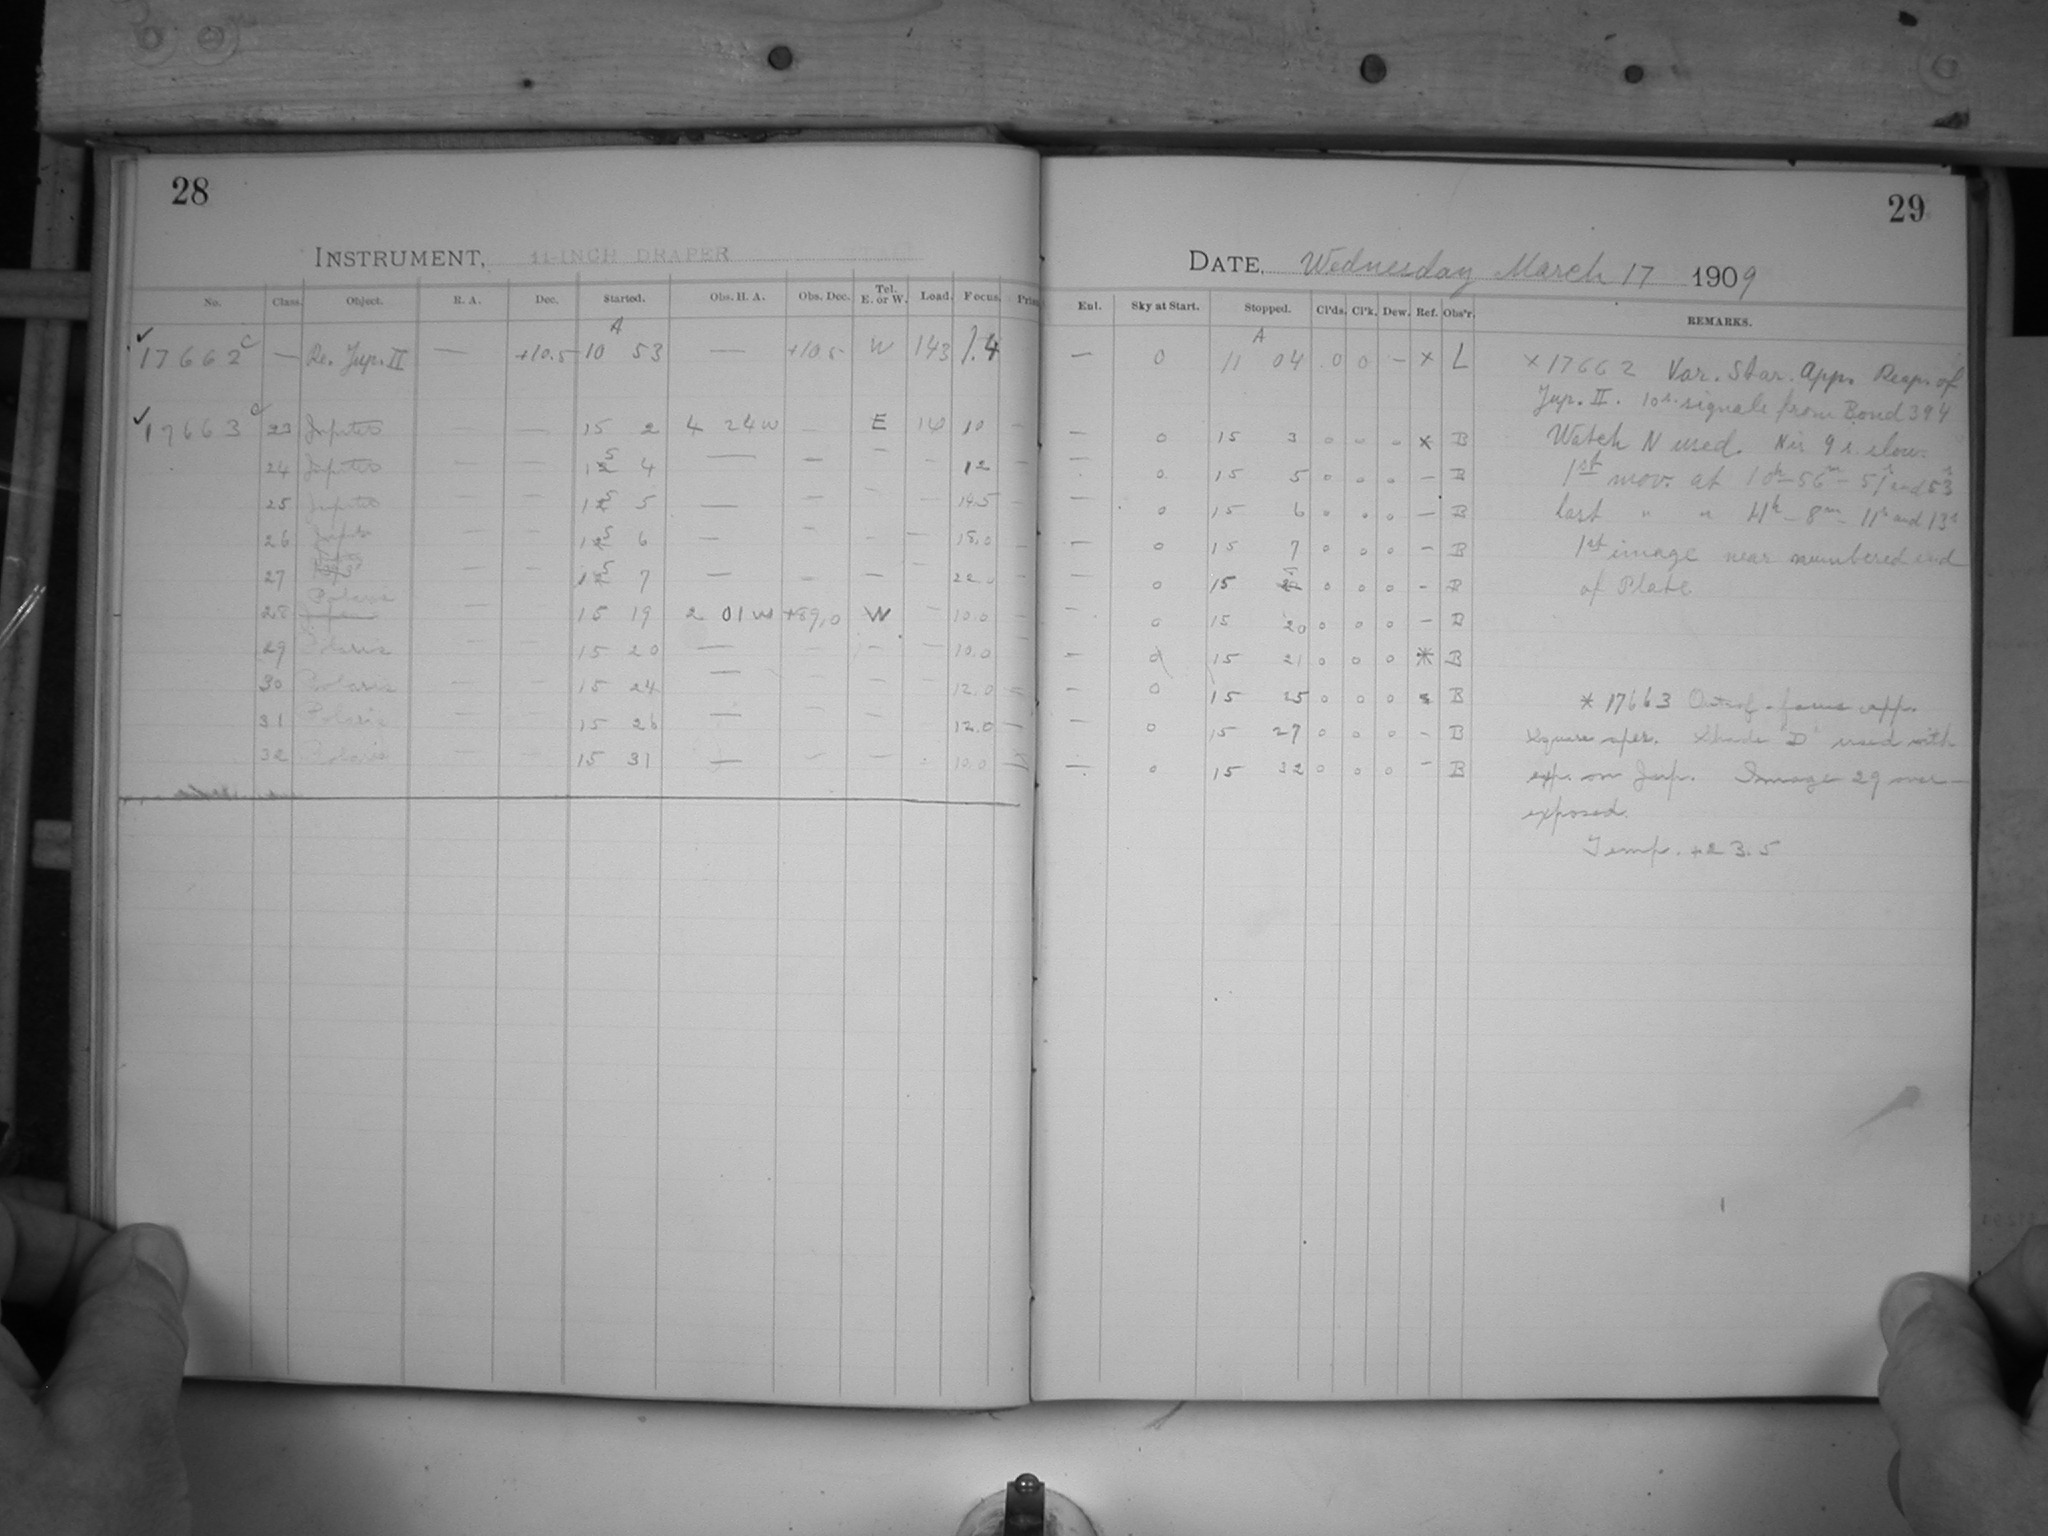 28
INSTRUMENT, 11-INCH DRAPER
No. Class. Object. R. A. Dec. Started. Obs. H. A. Obs. Dec. Tel. E. or W. Load. Focus.
A
17662 C — Re. Jup. II — +10.5 10 53 — +10.5 W 143 7.4
17663 C 23 Jupiter — — 15 2 4 24 W — E 10 —
24 Jupiter — — 15 4 — — — — 12 —
25 Jupiter — — 15 5 — 14.5 —
26 — — 15 6 — — — — 18.0 —
27 — — 15 7 — — — — 22.0 —
28 Polaris — 15 19 2 01 W +89.0 W — 10.0 —
29 Polaris — — 15 20 — — — — 10.0
30 Polaris — — 15 24 — — — — 12.0 —
31 Polaris — — 15 26 — — — 12.0 —
32 Polaris — 15 31 — — — 10.0 —
29
DATE, Wednesday March 17 1909
Enl. Sky at Start. Stopped. Cl'ds. Cl'k. Dew. Ref. Obs'r. REMARKS.
A
— 0 11 04 0 0 — x L x 17662 Var. Star. App. Reap. of
Jup. II. 10s. signals from Bond 394
— 0 15 3 0 0 0 x B Watch N used. N is 9 s. slow.
— 0 15 5 0 0 0 — B 1st mov. at 10h – 56m – 51s and 53s
— 0 15 6 0 0 0 — B last " " 11h – 8m – 11s and 13s
— 0 15 7 0 0 0 — B 1st image near numbered end
— 0 15 0 0 0 — B of Plate
— 0 15 20 0 0 0 — B
— 0 15 21 0 0 0 * B
— 0 15 25 0 0 0 B * 17663 Out of-focus app.
— 0 15 27 0 0 0 — B Square aper. Shade "D" used with
— 0 15 32 0 0 0 — B exp. on Jup. Image 29 over-
exposed.
Temp. +23.5